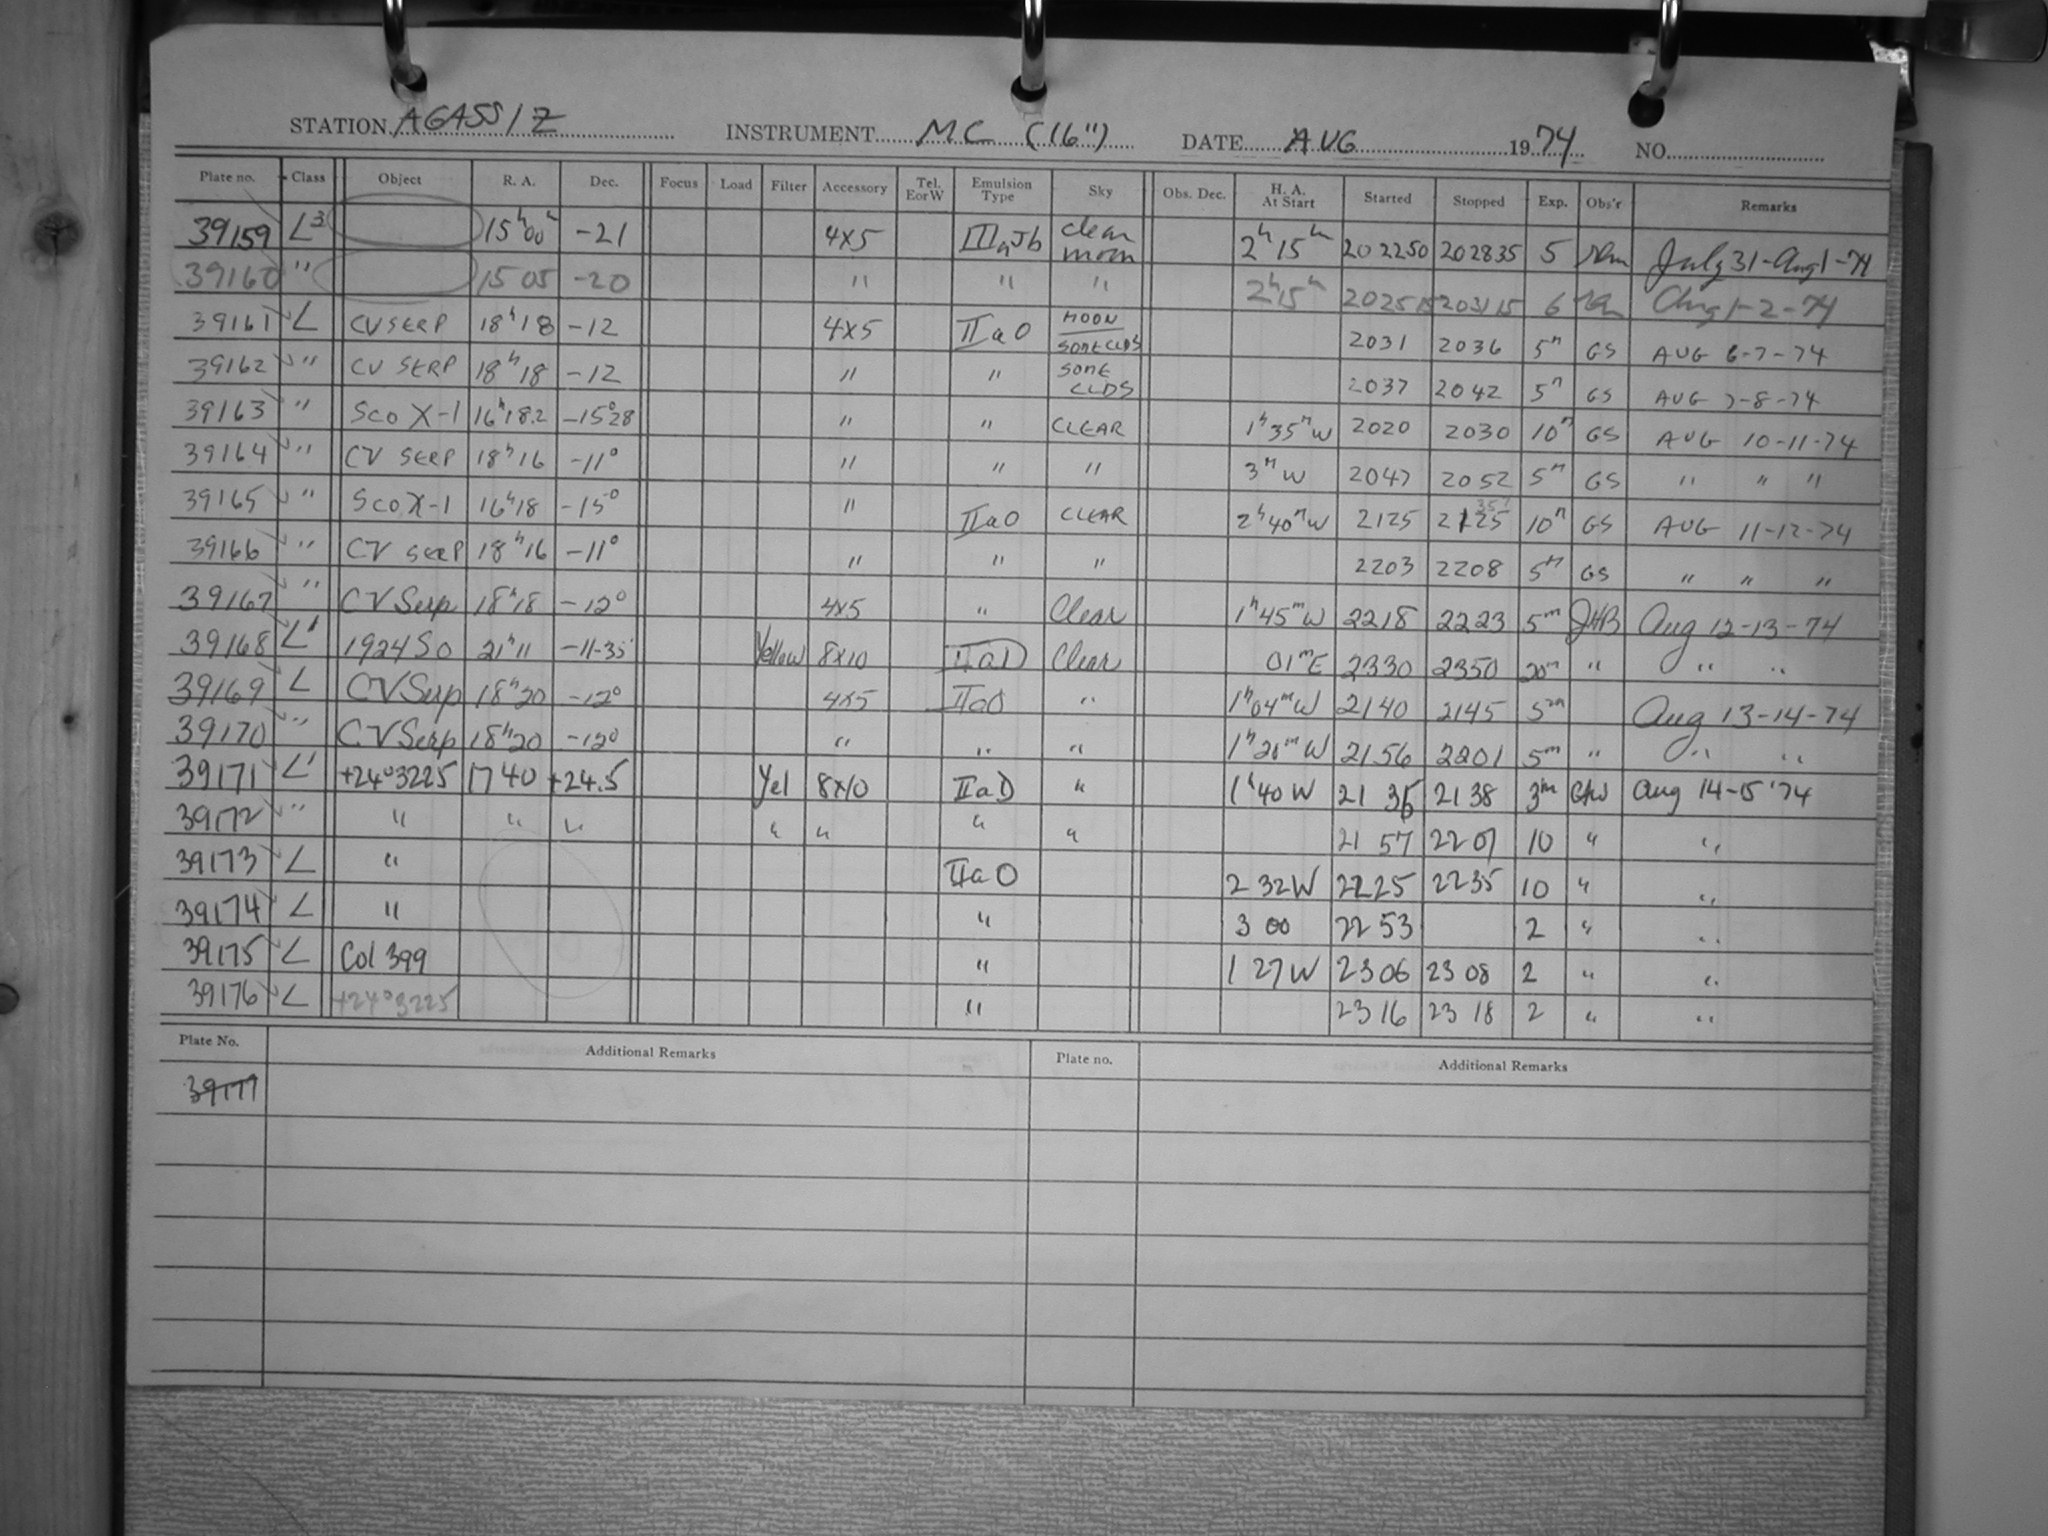 STATION AGASSIZ INSTRUMENT MC (16") DATE AUG 1974 NO.
Plate no. Class Object R. A. Dec. Focus Load Filter Accessory Tel. E or W Emulsion Type Sky Obs. Dec. H. A. At Start Started Stopped Exp. Obs'r Remarks
39159 L3 15h00m -21 4x5 IIIaJb clear moon 2h15m 202250 202835 5 July 31-Aug 1-74
39160 " 15 05 -20 " " " 2h15m 202515 203115 6 Aug 1-2-74
39161 L CV SERP 18h18 -12 4x5 IIaO MOON SOME CLDS 2031 2036 5m GS AUG 6-7-74
39162 " CV SERP 18h18 -12 " " SOME CLDS 2037 2042 5m GS AUG 7-8-74
39163 " Sco X-1 16h18.2 -15°28 " " CLEAR 1h35mW 2020 2030 10m GS AUG 10-11-74
39164 " CV SERP 18h16 -11° " " " 3mW 2047 2052 5m GS " " "
39165 " Sco X-1 16h18 -15° " IIaO CLEAR 2h40mW 2125 2125 35? 10m GS AUG 11-12-74
39166 " CV SERP 18h16 -11° " " " 2203 2208 5m GS " " "
39167 " CV Serp 18h18 -12° 4x5 " Clear 1h45mW 2218 2223 5m JHB Aug 12-13-74
39168 L' 1924 SO 21h11 -11-35' Yellow 8x10 IIaD Clear 01mE 2330 2350 20m " " "
39169 L CV Serp 18h20 -12° 4x5 IIaO " 1h04mW 2140 2145 5m Aug 13-14-74
39170 " CV Serp 18h20 -12° " " " 1h21mW 2156 2201 5m " " "
39171 L' +24°3225 17 40 +24.5 Yel 8x10 IIaD " 1h40W 21 35 21 38 3m Aug 14-15 '74
39172 " " " " " " " " 21 57 22 07 10 " "
39173 L " IIaO 2 32W 2225 2235 10 " "
39174 L " " 3 00 22 53 2 " "
39175 L Col 399 " 1 27W 23 06 23 08 2 " "
39176 L +24°3225 " 23 16 23 18 2 " "
Plate No. Additional Remarks Plate no. Additional Remarks
39177